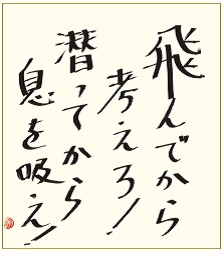 飛んでから
考えろ!
潜ってから
息を吸え!